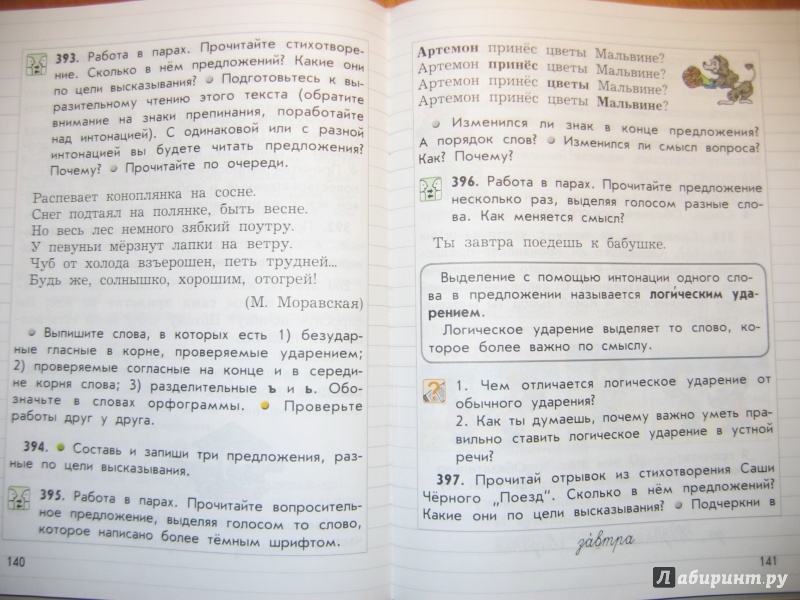 393. Работа в парах. Прочитайте стихотворе-
ние. Сколько в нём предложений? Какие они
по цели высказывания? Подготовьтесь к вы-
разительному чтению этого текста (обратите
внимание на знаки препинания, поработайте
над интонацией). С одинаковой или с разной
интонацией вы будете читать предложения?
Почему? Прочитайте по очереди.
Распевает коноплянка на сосне.
Снег подтаял на полянке, быть весне.
Но весь лес немного зябкий поутру.
У певуньи мёрзнут лапки на ветру.
Чуб от холода взъерошен, петь трудней...
Будь же, солнышко, хорошим, отогрей!
(М. Моравская)
Выпишите слова, в которых есть 1) безудар-
ные гласные в корне, проверяемые ударением;
2) проверяемые согласные на конце и в середи-
не корня слова; 3) разделительные ъ и ь. Обо-
значьте в словах орфограммы. Проверьте
работы друг у друга.
394. Составь и запиши три предложения, раз-
ные по цели высказывания.
395. Работа в парах. Прочитайте вопроситель-
ное предложение, выделяя голосом то слово,
которое написано более тёмным шрифтом.
140
Артемон принёс цветы Мальвине?
Артемон принёс цветы Мальвине?
Артемон принёс цветы Мальвине?
Артемон принёс цветы Мальвине?
Изменился ли знак в конце предложения?
А порядок слов? Изменился ли смысл вопроса?
Как? Почему?
396. Работа в парах. Прочитайте предложение
несколько раз, выделяя голосом разные сло-
ва. Как меняется смысл?
Ты завтра поедешь к бабушке.
Выделение с помощью интонации одного сло-
ва в предложении называется логи́ческим уда-
рением.
Логическое ударение выделяет то слово, ко-
торое более важно по смыслу.
1. Чем отличается логическое ударение от
обычного ударения?
2. Как ты думаешь, почему важно уметь пра-
вильно ставить логическое ударение в устной
речи?
397. Прочитай отрывок из стихотворения Саши
Чёрного „Поезд". Сколько в нём предложений?
Какие они по цели высказывания? Подчеркни в
за́втра
141
Лабиринт.ру